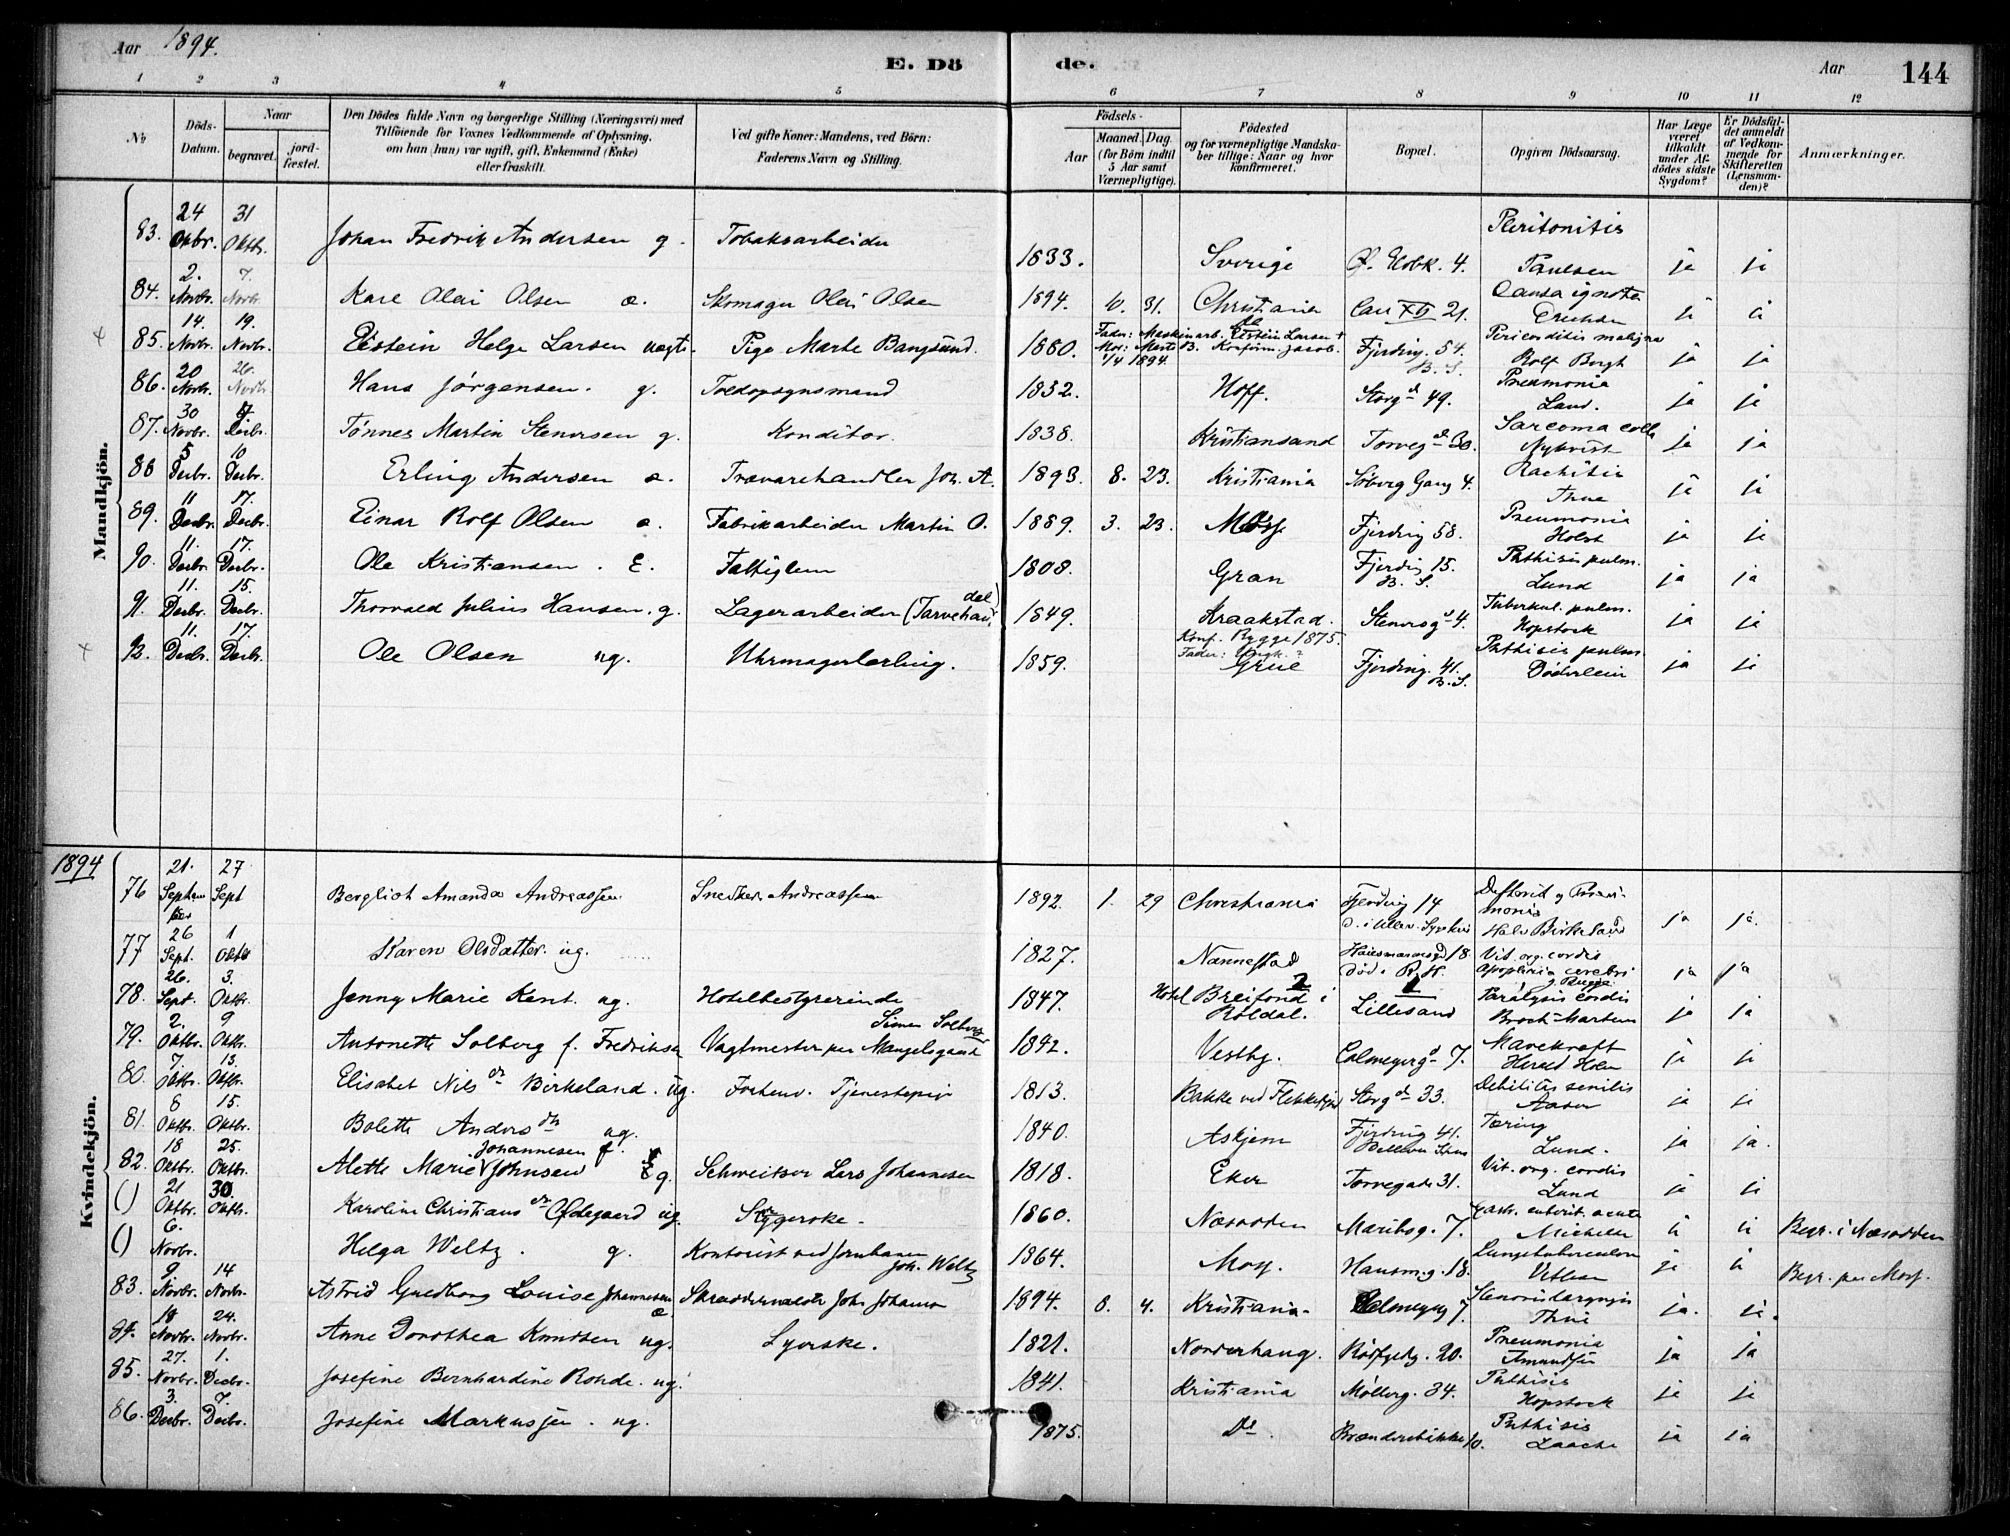 Aar 1894.
E. Dö de.
Aar 144
1 2 3 4 5 6 7 8 9 10 11 12
№
Döds-Datum.
Naar
begravet. jordfæstet.
Den Dödes fulde Navn og borgerlige Stilling (Næringsvei) med
Tilföiende for Voxnes Vedkommende af Oplysning,
om han (hun) var ugift, gift, Enkemand (Enke)
eller fraskilt.
Ved gifte Koner: Mandens, ved Börn:
Faderens Navn og Stilling.
Födsels-
Aar
Maaned. Dag.
(for Börn indtil
5 Aar samt
Værnepligtige).
Födested
og for værnepligtige Mandska-
ber tillige: Naar og hvor
konfirmeret.
Bopæl.
Opgiven Dödsaarsag.
Har Læge
været
tilkaldt
under Af-
dödes sidste
Sygdom?
Er Dödsfal-
det anmeldt
af Vedkom-
mende for
Skifteretten
(Lensman-
den)?
Anmærkninger.
Mandkjön.
83. 24 Oktbr. 31 Oktbr. Johan Fredrik Andersen g. Tobaksarbeider 1833. Sverige Ø. Elvbk. 4. Peritonitis Paulsen ja ja
84. 2. Novbr. 7. Novbr. Karl Olai Olsen æ. Skomager Olai Olsen 1894. 10. 31. Christiania Carl XII 21. Causa ignota Erichsen ja ja
85. 14. Novbr. 19. Novbr. Eistein Helge Larsen uægte Pige Marte Bangsund. 1880. Fader: Maskinarb. Eistein Larsen + Mor: Marte B. Konfirm. Jacob. 1/4 1894. Fjerding. 54. B. S. Pericarditis maligna Rolf Borgh ja ja
86. 20 Novbr. 26. Novbr Hans Jörgensen. g. Toldopsynsmand 1832. Hoff. Storgd 49. Pneumonia Lund. ja ja
87. 30 Novbr. 7 Decbr. Tönnes Martin Stenersen g. Konditor. 1838. Kristiansand Torvegd 30. Sarcoma colli Nykvist ja ja
88 5 Decbr. 10 Decbr. Erling Andersen æ. Trævarehandler Joh. A. 1893. 8. 23. Kristiania Søberg Gang 4. Rachitis Thue ja ja
89. 11 Decbr. 17. Decbr. Einar Rolf Olsen æ. Fabrikarbeider Martin O. 1889. 3. 23. Moss Fjerding 58. Pneumonia Holst ja ja
90. 11. Decbr. 17. Decbr. Ole Kristiansen. E. Fattiglem 1808. Gran Fjerding 15. B. S. Phthisis pulm. Lund ja ja
91. 11. Decbr. 15. Decbr. Thorvald Julius Hansen. g. Lagerarbeider (Tarvehandel) 1849. Kraakstad. Stenersgd 4. Tuberkul. pulm. Hopstock ja ja
92. 11. Decbr. 17. Decbr. Ole Olsen ug. Uhrmagerlærling. 1859. Konf. Rygge 1875. Fader: Grue Fjerding. 41. B. S. Phthisis pulm. Döderlein ja ja
Kvindekjön.
1894
76 21. September 27 Sept Bergliot Amanda Andreassen Snedker Andreassen 1892. 1. 29 Christiania Fjerding 14 D. i Ullev. Sygehus Difterit og Pneumonia Halv. Birkeland ja ja.
77 26 Sept. 1 Oktbr Karen Olsdatter. ug. 1827. Nannestad Hausmannsgd 18. Död i R. H. Vit. org. cordis apoplexia cerebri Bugge ja ja
78. 26. Sept. 3. Oktbr. Jenny Marie Kent. ug. Hotelbestyrerinde 1847. Hotel Breifond i Röldal. 2 Lillesand 1 Paralysis cordis Broch-Martens ja ja
79. 2. Oktbr. 9 Oktbr. Antonette Solberg f. Fredriksen Vagtmester per Mangelsgaard Simen Solberg 1842. Vestby. Calmeyergd 7. Mavekræft Harald Holm ja ja
80. 7. Oktbr. 13. Oktbr. Elisabet Nilsdtr Birkeland. ug. Forhenv. Tjenestepige 1813. Bakke ved Flekkefjord Storgd 33. Debilitas senilis Aaser ja ja
81. 8 Oktbr. 15. Oktbr. Bolette Andersdtr ug. 1840. Askjem Fjerding 41. Tæring Lund. ja ja.
82. 18 Oktbr. 25. Oktbr. Alette Marie Johannesen f. Johnsen E g. Schweitser Lars Johannesen 1818. Eker Torvegade 31. Vit. org. cordis Lund ja ja
() 21 Oktbr. 30. Oktbr. Karoline Christiansdtr Ødegaard ug. Syerske. 1860. Næsodden Maribog. 7. Gastr. enterit. acuta Michelet ja ja Begr. i Næsodden
() 6. Novbr. Helga Weltz. g. Kontorist ved Jernbanen Joh. Weltz 1864. Moss. Hausm. g. 18. Lungetuberculose Vetlesen ja ja Begr. per Moss.
83. 9 Novbr. 14 Novbr. Astrid Guedborg Louise Johannesen æ Skræddersvend Johs Johannesen 1894. 8. 4. Kristiania. Calmeyerg 7. Stenosis laryngis Thue ja. ja.
84. 18 Novbr. 24. Novbr. Anne Dorothea Knudsen ug. Syerske. 1821. Norderhaug. Rödfyldg. 20. Pneumonia Amundsen ja ja
85. 27. Novbr. 1. Decbr. Josefine Bernhardine Rohde. ug. 1841. Kristiania Möllerg. 34. Phthisis Hopstock ja ja
86. 3. Decbr. 7. Decbr. Josefine Markussen. ug. 1875. Do. Brænderibakken 10. Phthisis Laache ja ja